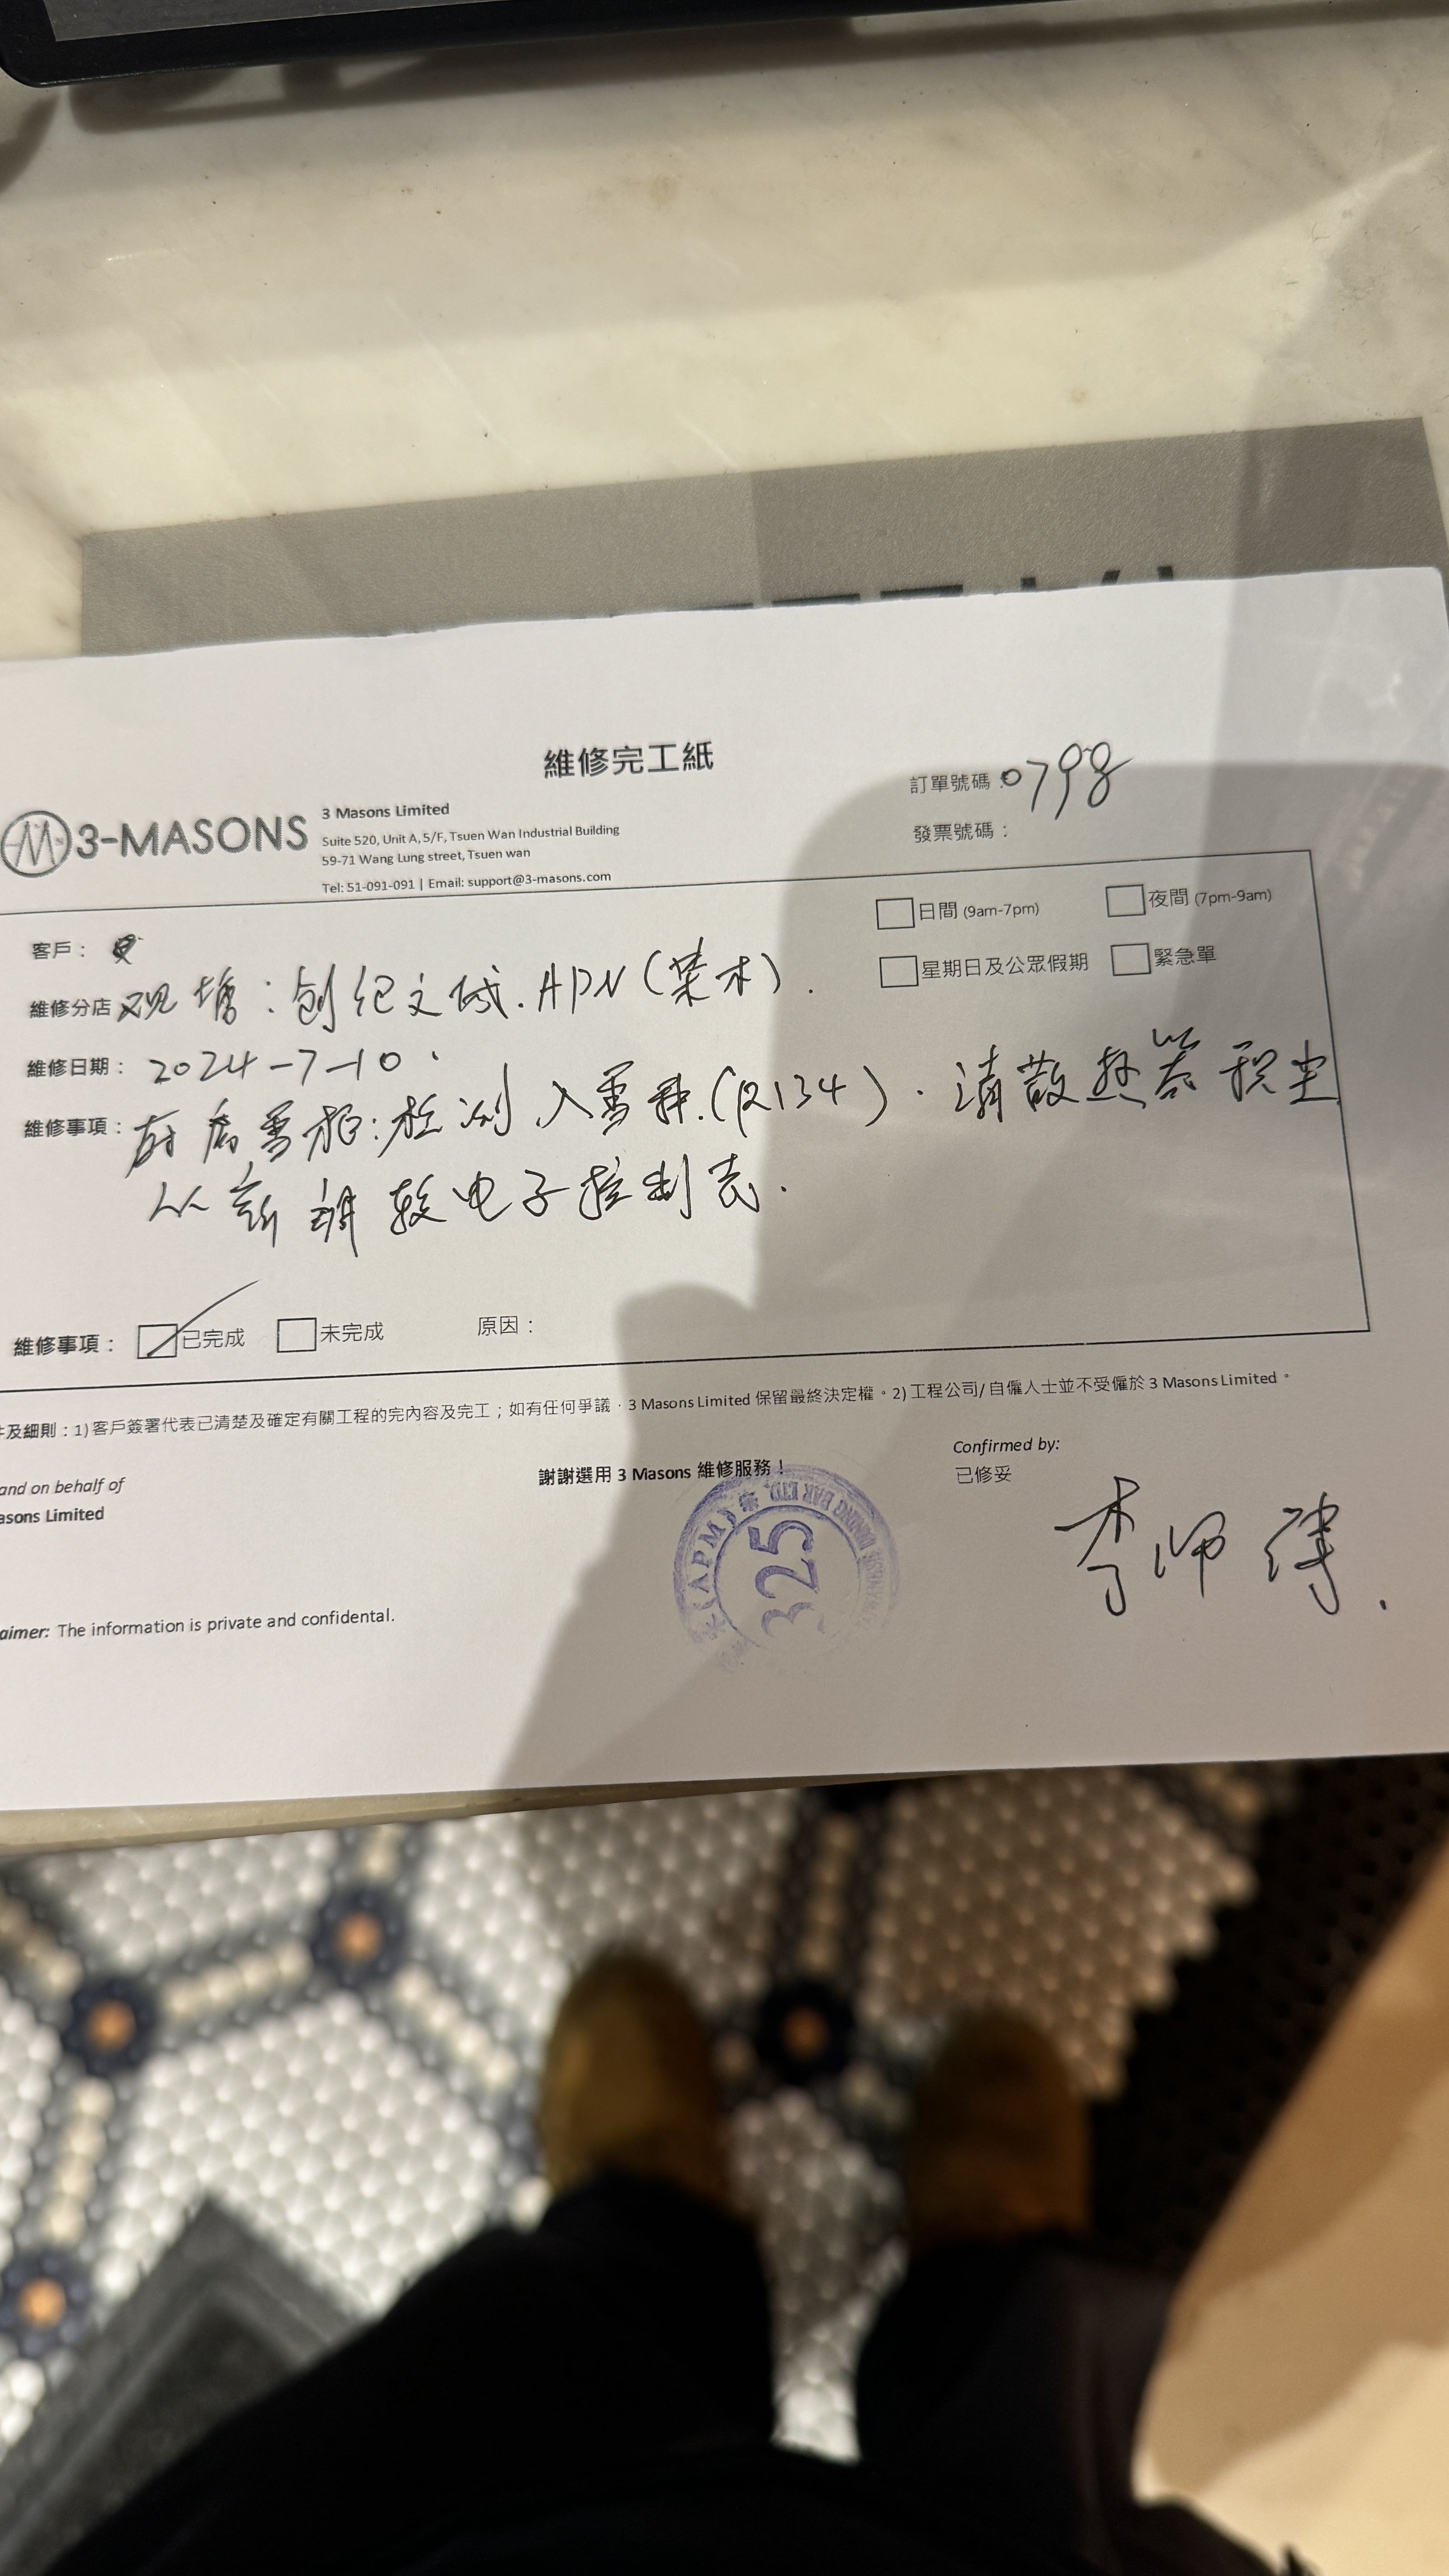 維修完工紙
訂單號碼：0798
發票號碼：
3-MASONS
3 Masons Limited
Suite 520, Unit A, 5/F, Tsuen Wan Industrial Building
59-71 Wang Lung street, Tsuen wan
Tel: 51-091-091 | Email: support@3-masons.com
日間 (9am-7pm) 夜間 (7pm-9am)
星期日及公眾假期 緊急單
客戶：
維修分店 观塘：创纪文城. APM
維修日期：2024-7-10
維修事項：雪柜：检测 入雪种.(R134). 清散热器积尘
电子控制
維修事項： 已完成 未完成 原因：
及細則：1) 客戶簽署代表已清楚及確定有關工程的完內容及完工；如有任何爭議，3 Masons Limited 保留最終決定權。2) 工程公司/ 自僱人士並不受僱於 3 Masons Limited。
and on behalf of
asons Limited
謝謝選用 3 Masons 維修服務！
Confirmed by:
已修妥
李师傅.
(APM)
325
aimer: The information is private and confidental.